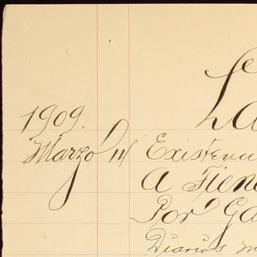 La
1909.
Marzo 14 Existenci
A Tiend
Por Ga
Diarios m